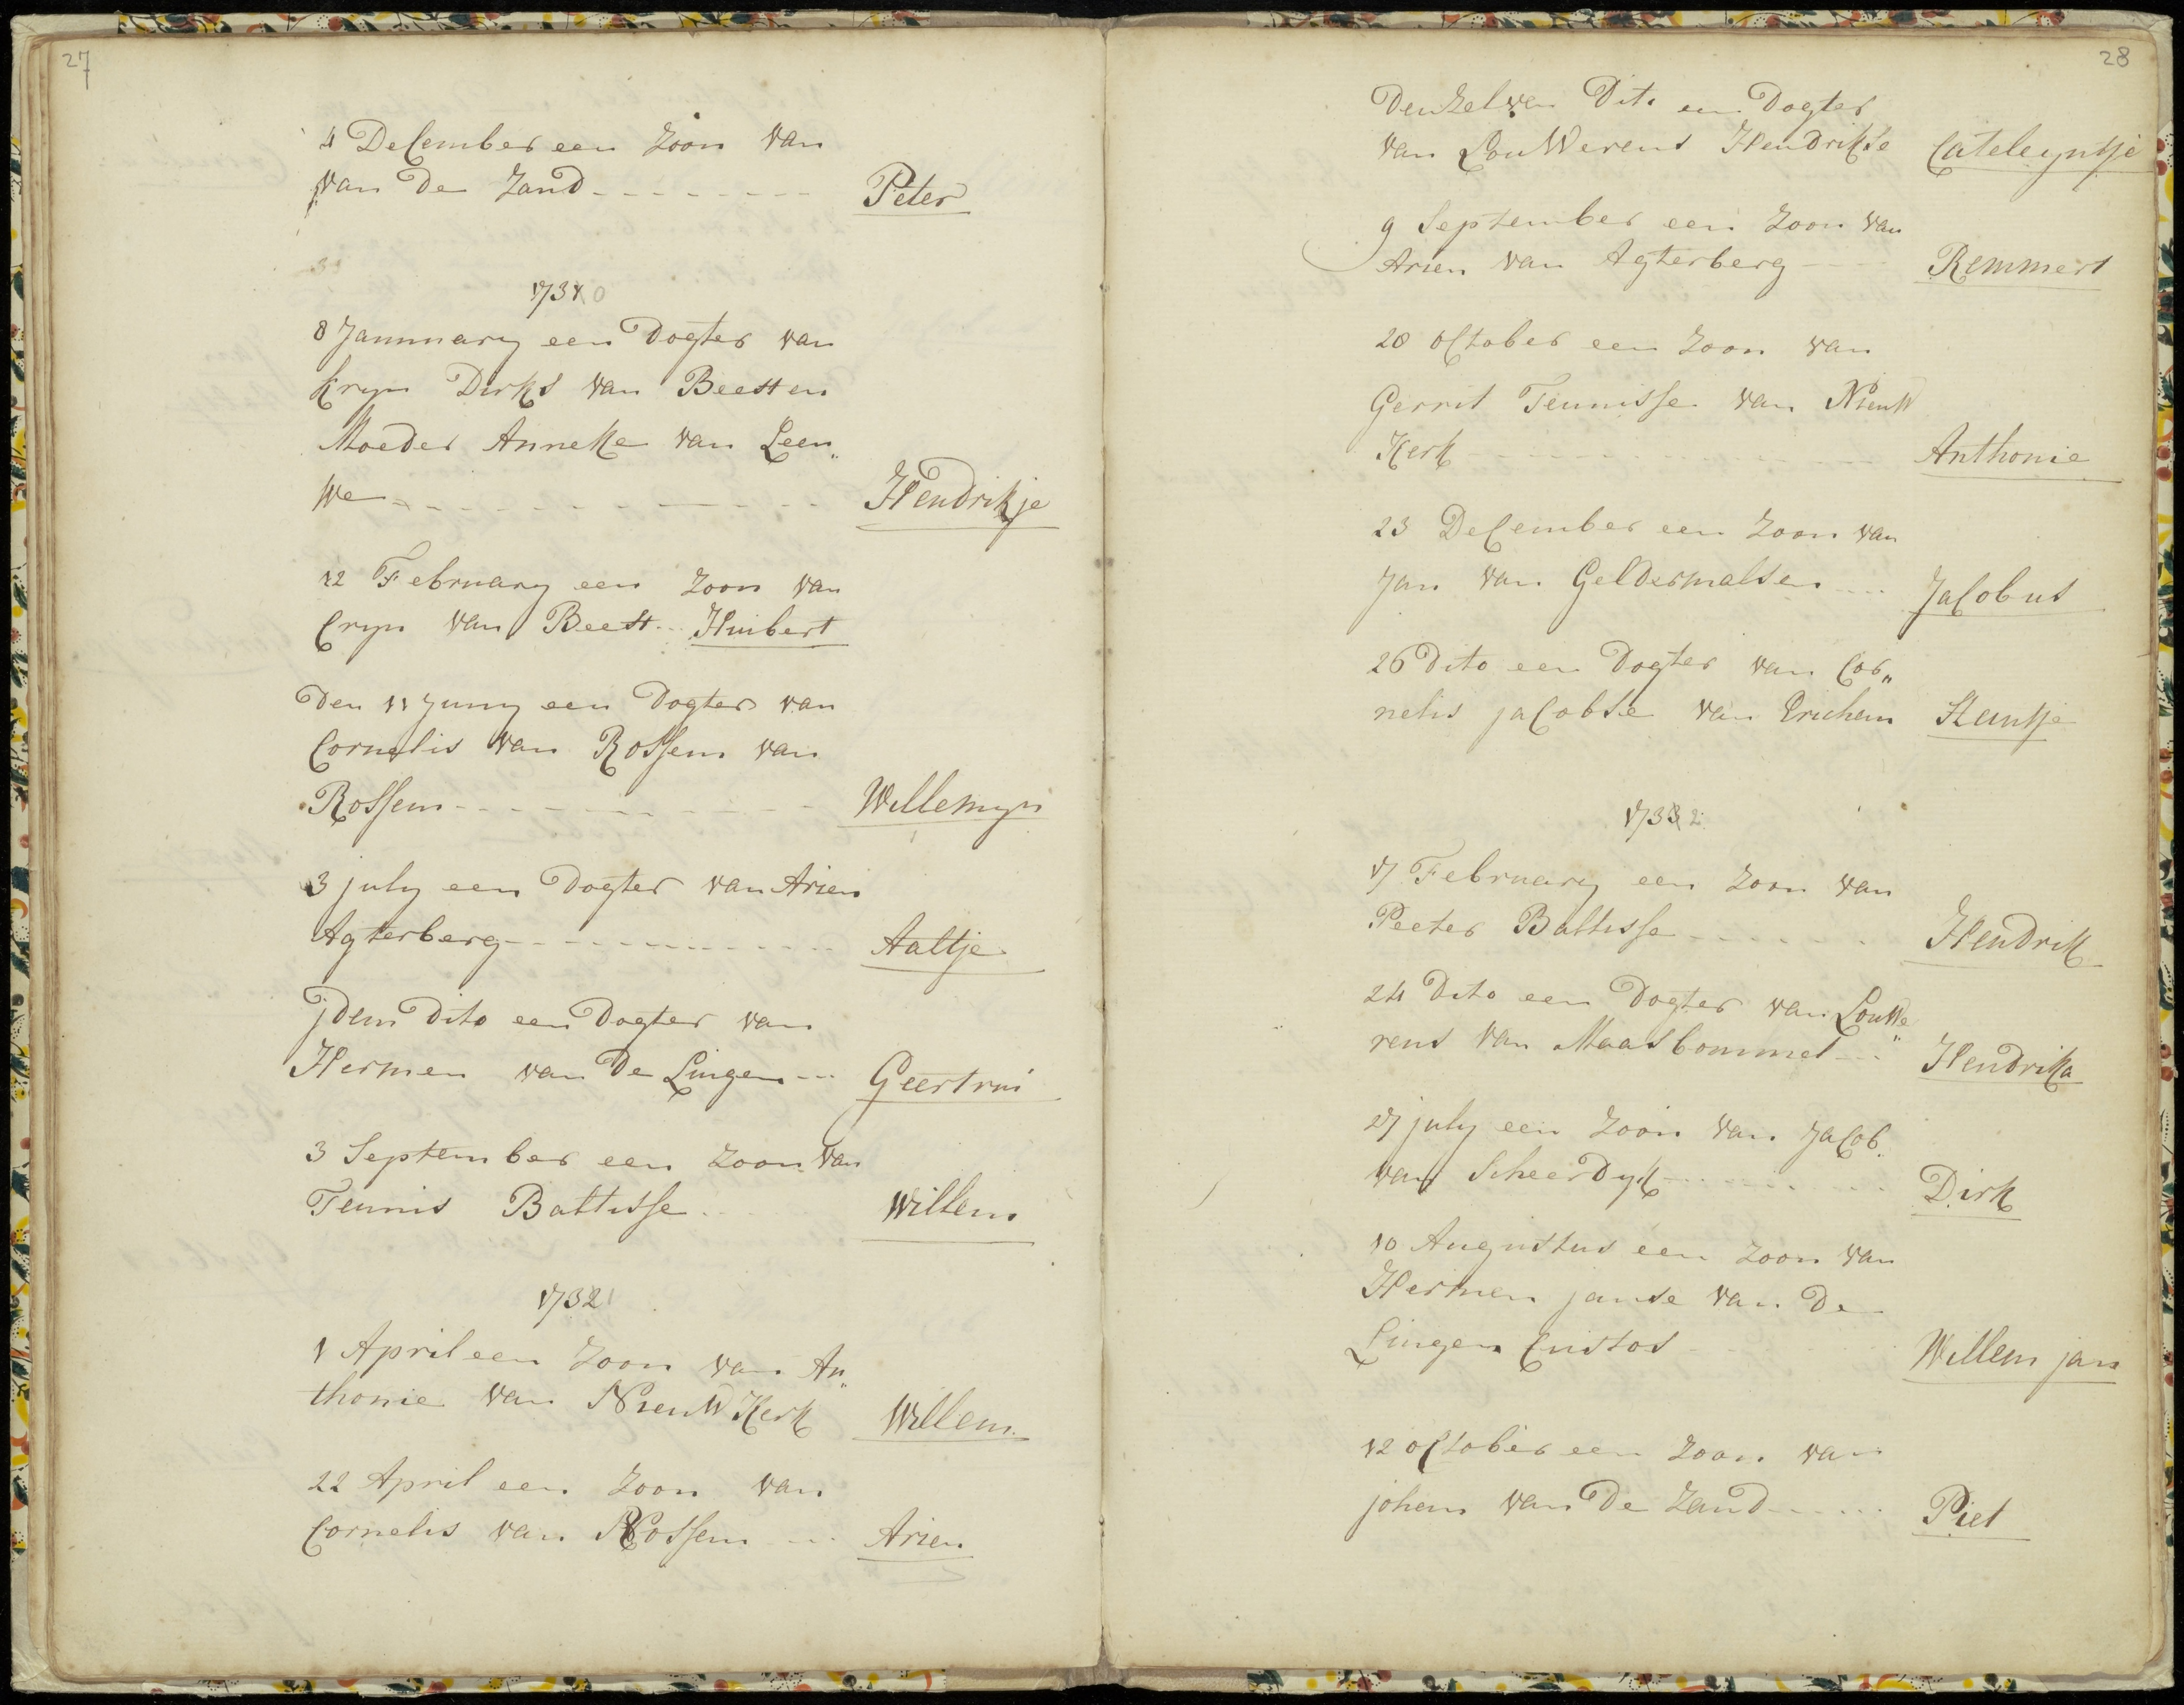 27
4 December een Zoon van
van de Zand - - - - - - - Peter
1731 0
8 Jannuary een Dogter van
Kryn Dirks van Beesten
Moeder Anneke van Leeu„
we - - - - - - - - - - - Hendrikje
12 February een Zoon van
Cryn van Beest .. Huibert
Den 11 Juny een Dogter van
Cornelis van Rossem van
Rossem - - - - - - - - - Willemyn
3 july een Dogter van Arien
Agterberg - - - - - - - - - Aaltje
jdem Dito een Dogter van
Hermen van de Lingen --- Geertrui
3 September een Zoon van
Teunis Baltisse - - - Willem
1732 1
1 April een Zoon van An„
thonie van NieuwKerk Willem
22 April een Zoon van
Cornelis van Rossem --- Arien
28
Denzelven Dito een Dogter
van Louwerens Hendrikse Cateleyntje
9 September een Zoon van
Arien van Agterberg --- Remmert
28 october een Zoon van
Gerrit Teunisse van Nieuw
Kerk - - - - - - - - - - - Anthonie
23 December een Zoon van
Jan van Geldermalsen --- Jacobus
26 Dito een Dogter van Cor„
nelis jacobse van
1733 2
17 February een Zoon van
Peeter Baltisse - - - - - - Hendrik
24 Dito een Dogter van Louwe„
rens van Maasbommel --- Hendrika
27 july een Zoon van Jacob
van Scheerdyk - - - - - - - Dirk
10 Augustus een Zoon van
Hermen janse van De
Lingen Custos - - - Willem jan
12 october een Zoon van
johem van de Zand - - - - - Piet